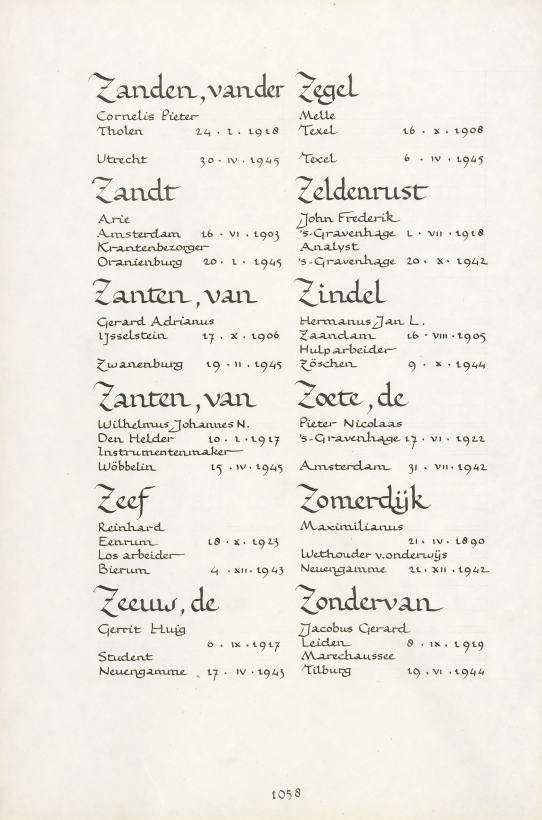 Zanden, van der
Cornelis Pieter
Tholen 24 · 1 · 1918
Utrecht 30 · IV · 1945
Zandt
Arie
Amsterdam 16 · VI · 1903
Krantenbezorger
Oranienburg 20 · 1 · 1945
Zanten, van
Gerard Adrianus
IJsselstein 17 · X · 1906
Zwanenburg 19 · II · 1945
Zanten, van
Wilhelmus Johannes N.
Den Helder 10 · 1 · 1917
Instrumentenmaker
Wöbbelin 15 · IV · 1945
Zeef
Reinhard
Eenrum 18 · X · 1923
Los arbeider
Bierum 4 · XII · 1943
Zeeuw, de
Gerrit Huig
6 · IX · 1917
Student
Neuengamme 17 · IV · 1943
Zegel
Melle
Texel 16 · X · 1908
Texel 6 · IV · 1945
Zeldenrust
John Frederik
's-Gravenhage 1 · VII · 1918
Analyst
's-Gravenhage 20 · X · 1942
Zindel
Hermanus Jan L.
Zaandam 16 · VIII · 1905
Hulparbeider
Zöschen 9 · X · 1944
Zoete, de
Pieter Nicolaas
's-Gravenhage 17 · VI · 1922
Amsterdam 31 · VII · 1942
Zomerdijk
Maximilianus
21 · IV · 1890
Wethouder v. onderwijs
Neuengamme 21 · XII · 1942
Zondervan
Jacobus Gerard
Leiden 8 · IX · 1919
Marechaussee
Tilburg 19 · VI · 1944
1058